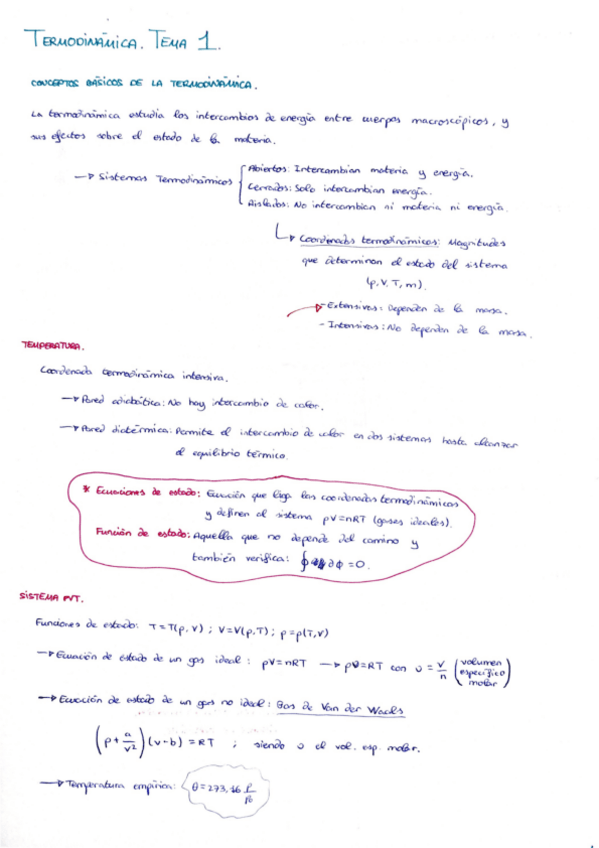 TERMODINÁMICA. TEMA 1.
CONCEPTOS BÁSICOS DE LA TERMODINÁMICA.
La termodinámica estudia los intercambios de energía entre cuerpos macroscópicos, y
sus efectos sobre el estado de la materia.
→ Sistemas Termodinámicos
Abiertos: Intercambian materia y energía.
Cerrados: Solo intercambian energía.
Aislados: No intercambian ni materia ni energía.
↳ Coordenadas termodinámicas: Magnitudes
que determinan el estado del sistema
(p, V, T, m).
- Extensivas: Dependen de la masa.
- Intensivas: No dependen de la masa.
TEMPERATURA.
Coordenada termodinámica intensiva.
→ Pared adiabática: No hay intercambio de calor.
→ Pared diatérmica: Permite el intercambio de calor en dos sistemas hasta alcanzar
el equilibrio térmico.
* Ecuaciones de estado: Ecuación que liga las coordenadas termodinámicas
y definen al sistema pV=nRT (gases ideales).
Función de estado: Aquella que no depende del camino y
también verifica: ∮ ∂ϕ = 0.
SISTEMA PVT.
Funciones de estado: T=T(p,V) ; V=V(p,T) ; p=p(T,V)
→ Ecuación de estado de un gas ideal: pV=nRT → pυ=RT con υ = V/n (volumen específico molar)
→ Ecuación de estado de un gas no ideal: Gas de Van der Waals
(p + a/v²)(v-b) = RT ; siendo υ el vol. esp. molar.
→ Temperatura empírica: θ = 273,16 P/P₀